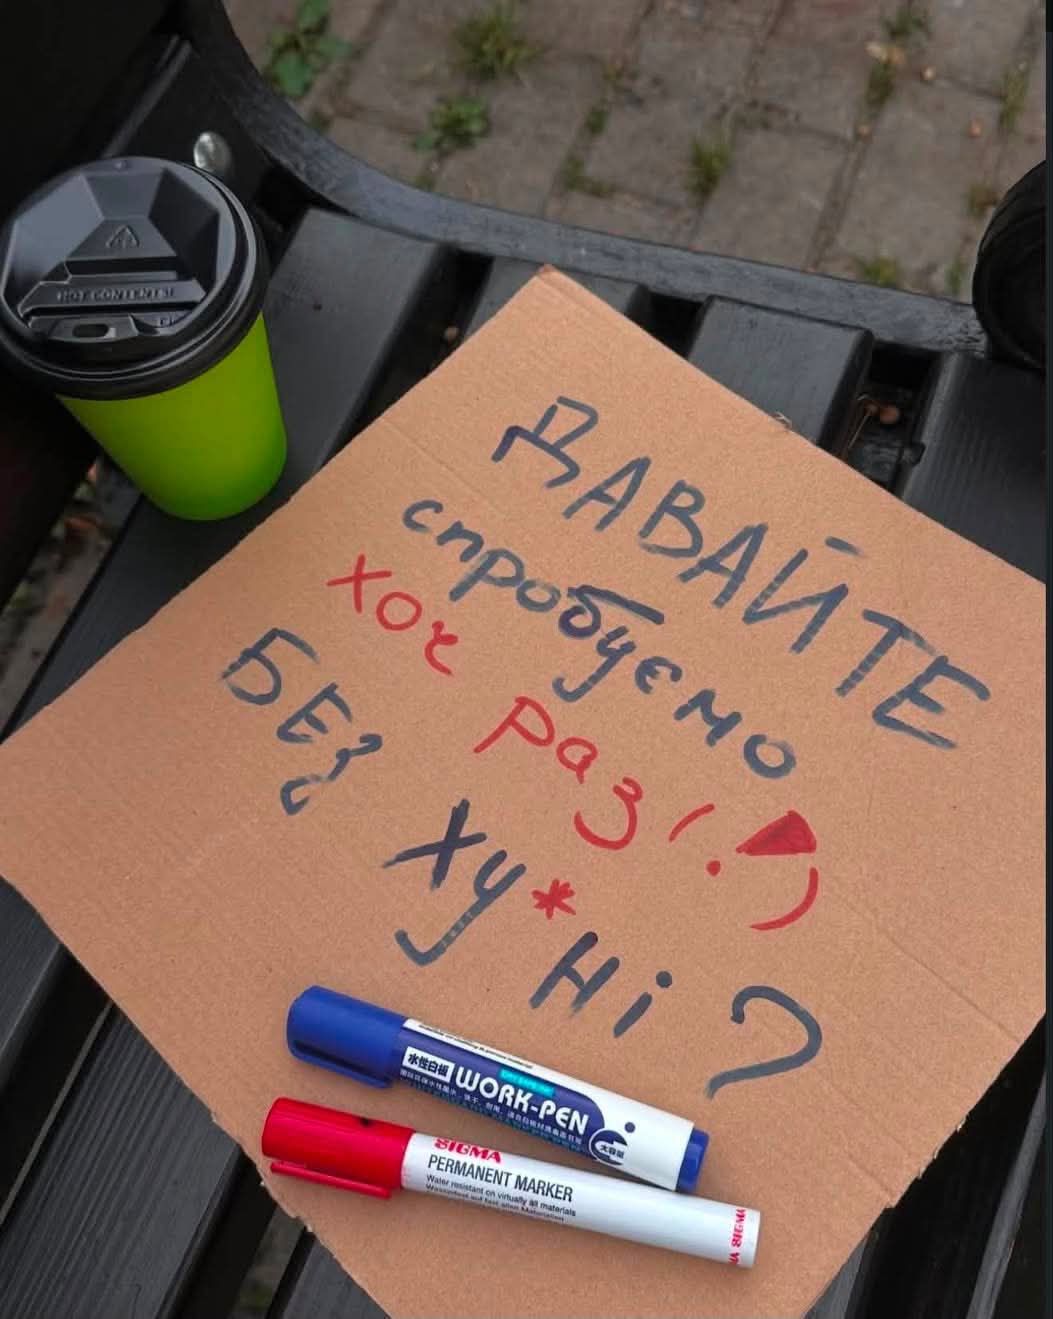 ДАВАЙТЕ
спробуємо
хоч раз!!)
БЕЗ ху*Ні?
HOT CONTENTS!
水性白板
WORK-PEN
大容量
SIGMA
PERMANENT MARKER
Water resistant on virtually all materials
SIGMA